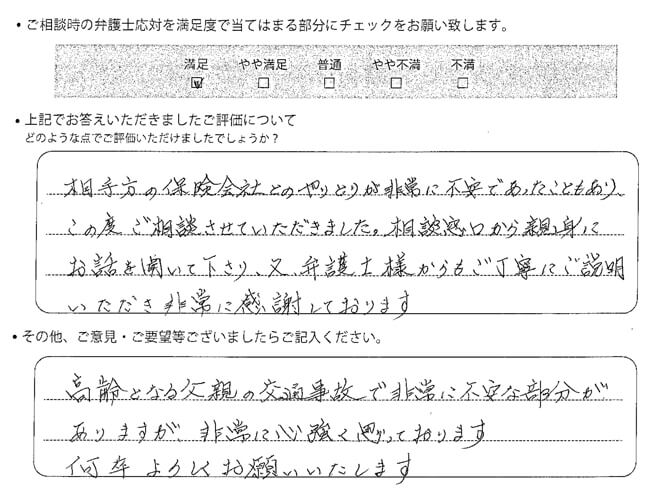 ・ご相談時の弁護士応対を満足度で当てはまる部分にチェックをお願い致します。
満足 やや満足 普通 やや不満 不満
・上記でお答えいただきましたご評価について
どのような点でご評価いただけましたでしょうか？
相手方の保険会社とのやりとりが非常に不安であったこともあり、
この度ご相談させていただきました。相談窓口から親身に
お話を聞いて下さり、又、弁護士様からもご丁寧にご説明
いただき非常に感謝しております
・その他、ご意見・ご要望等ございましたらご記入ください。
高齢となる父親の交通事故で非常に不安な部分が
ありますが、非常に心強く思っております
何卒よろしくお願いいたします